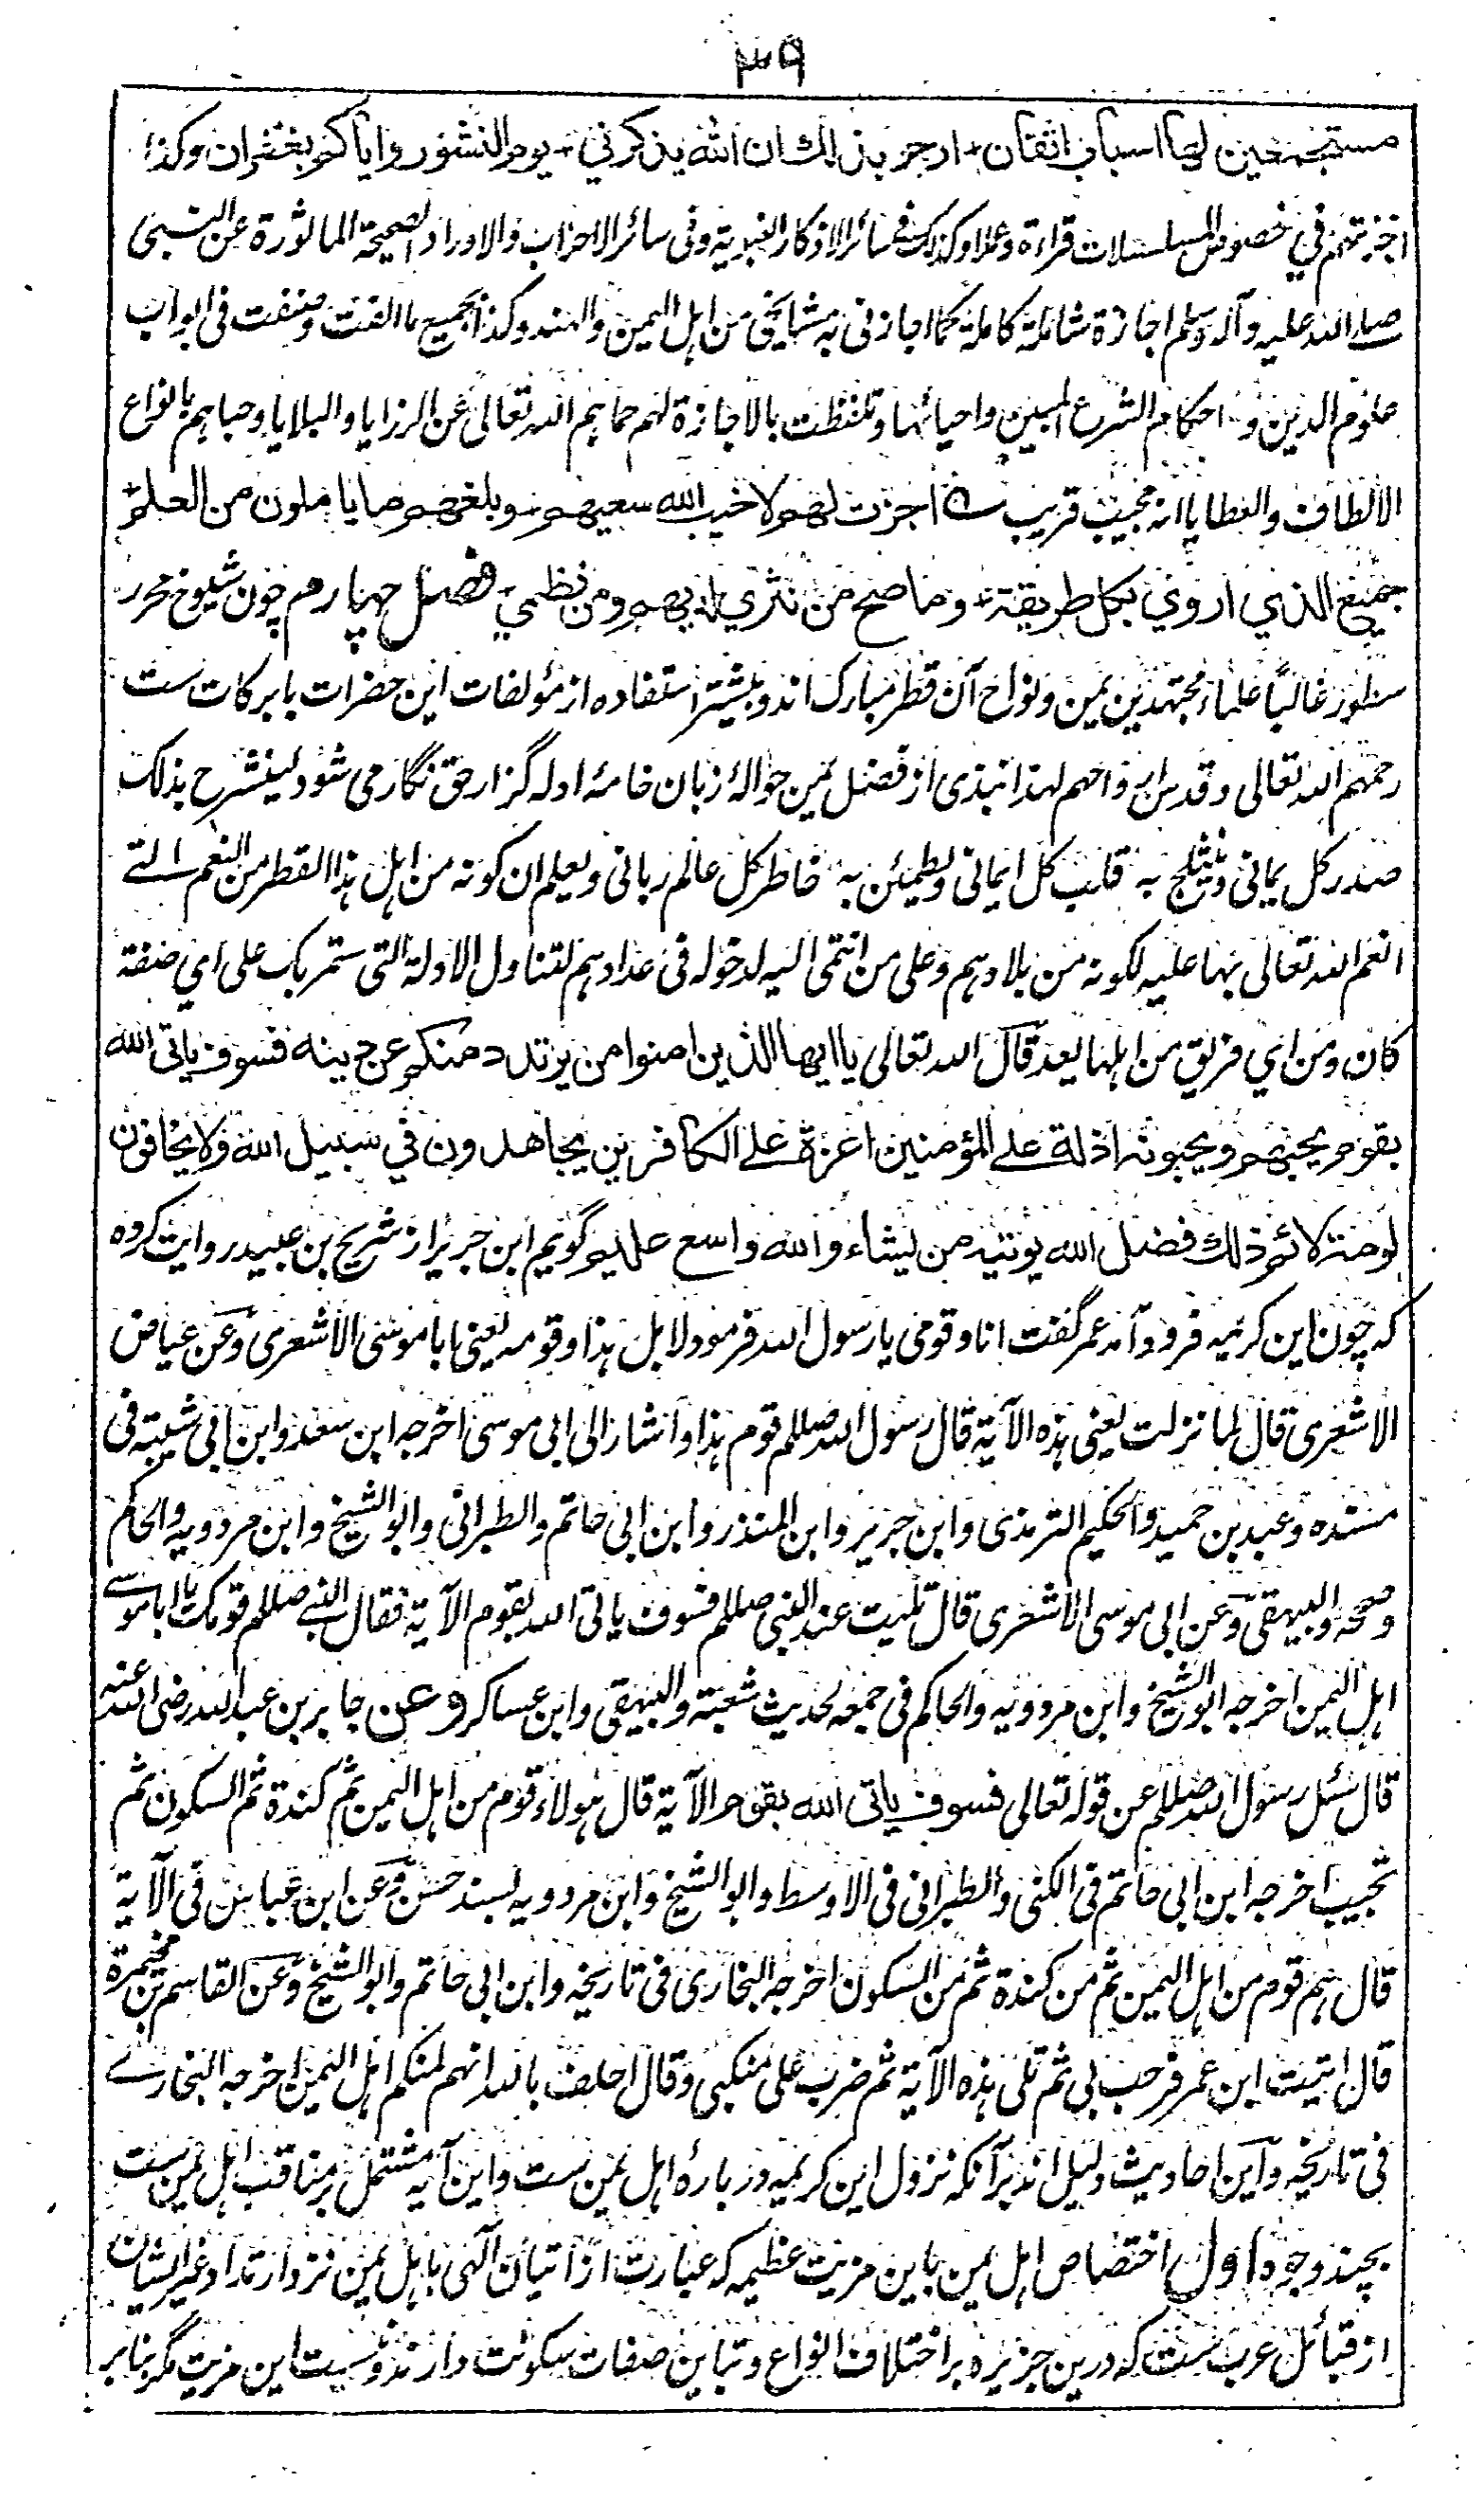 ٣٩
مستجمعین لها اسباب اتقان + ارجو بذلك ان الله یذکرني + یوم النشور وایاکم بغفران وکذا
اجزتهم في خصوص المسلسلات قراءة وعملا وکذلک فی سائر الاذکار النبویة وفی سائر الاحزاب والاوراد الصحیحة الماثورة عن النبی
صلے الله علیه وآله وسلم اجازة شاملة کاملة کما اجازنی به مشایخی من اهل الیمن والهند وکذا بجمیع ما الفت وصنفت فی ابواب
علوم الدین واحکام الشرع المبین واحیائها وتلفظت بالاجازة لهم حماهم الله تعالی عن الرزایا والبلایا وحباهم بانواع
الالطاف والعطایا انه مجیب قریب ۵ اجزت لهم لا خیب الله سعیهم + وبلغهم ما یاملون من العلم +
جمیع الذي اروي بکل طریقة + وما صح من نثري لدیهم ومن نظمي فصل چهارم چون شیوخ محرر
سطور غالبًا علماء مجتهدین یمن ونواح آن قطر مبارک اند وبیشتر استفاده از مؤلفات این حضرات بابرکات ست
رحمهم الله تعالی وقدس ارواحهم لهذا نبذی از فضل یمن حوالۂ زبان خامۂ ادله گزار حق نگار می شود لینشرح بذلک
صدر کل یمانی ویثلج به قلب کل ایمانی ویطمئن به خاطر کل عالم ربانی ولیعلم ان کونه من اهل هذا القطر من النعم التے
انعم الله تعالی بها علیه لکونه من بلادهم وعلی من انتمی الیه لدخوله فی عدادهم لتناول الادلة التی ستمر بک علی اي صفة
کان ومن اي فریق من اهلها یعد قال الله تعالی یا ایها الذین امنوا من یرتدد منکم عن دینه فسوف یاتی الله
بقوم یحبهم ویحبونه اذلة علے المؤمنین اعزة علے الکافرین یجاهدون في سبیل الله ولا یخافون
لومة لائم ذلك فضل الله یوتیه من یشاء والله واسع علیم گویم ابن جریر از شریح بن عبید روایت کرده
که چون این کریمه فرود آمد عمر گفت انا وقومی یا رسول الله فرمود لا بل هذا وقومه یعنی ابا موسی الاشعری وعن عیاض
الاشعری قال لما نزلت یعنی هذه الآیة قال رسول الله صللم قوم هذا واشار الی ابی موسی اخرجه ابن سعد وابن ابی شیبة فی
مسنده وعبد بن حمید والحکیم الترمذی وابن جریر وابن المنذر وابن ابی حاتم والطبرانی وابو الشیخ وابن مردویه والحاکم
وصححه والبیهقی وعن ابی موسی الاشعری قال تلیت عند النبی صللم فسوف یاتی الله بقوم الآیة فقال النبے صللم قومک یا ابا موسے
اهل الیمن اخرجه ابو الشیخ وابن مردویه والحاکم فی جمعه لحدیث شعبة والبیهقی وابن عساکر وعن جابر بن عبد الله رضی الله عنه
قال سئل رسول الله صللم عن قوله تعالی فسوف یاتی الله بقوم الآیة قال هولاء قوم من اهل الیمن ثم کندة ثم السکون ثم
تجیب اخرجه ابن ابی حاتم فی الکنی والطبرانی فی الاوسط وابو الشیخ وابن مردویه بسند حسن وعن ابن عباس فی الآیة
قال هم قوم من اهل الیمن ثم من کندة ثم من السکون اخرجه البخاری فی تاریخه وابن ابی حاتم وابو الشیخ وعن القاسم بن مخیمرة
قال اتیت ابن عمر فرحب بی ثم تلی هذه الآیة ثم ضرب علی منکبی وقال احلف بالله انهم لمنکم اهل الیمن اخرجه البخارے
فی تاریخه واین احادیث دلیل اند بر آنکه نزول این کریمه در بارۂ اهل یمن ست واین آیه مشتمل بر مناقب اهل یمن ست
بچند وجوه اول اختصاص اهل یمن باین مزیت عظیمه که عبارت از اتیان آلهی باهل یمن نزد ارتداد غیر ایشان
از قبائل عرب ست که درین جزیره بر اختلاف انواع وتباین صفات سکونت دارند ونیست این مزیت مگر بنابر